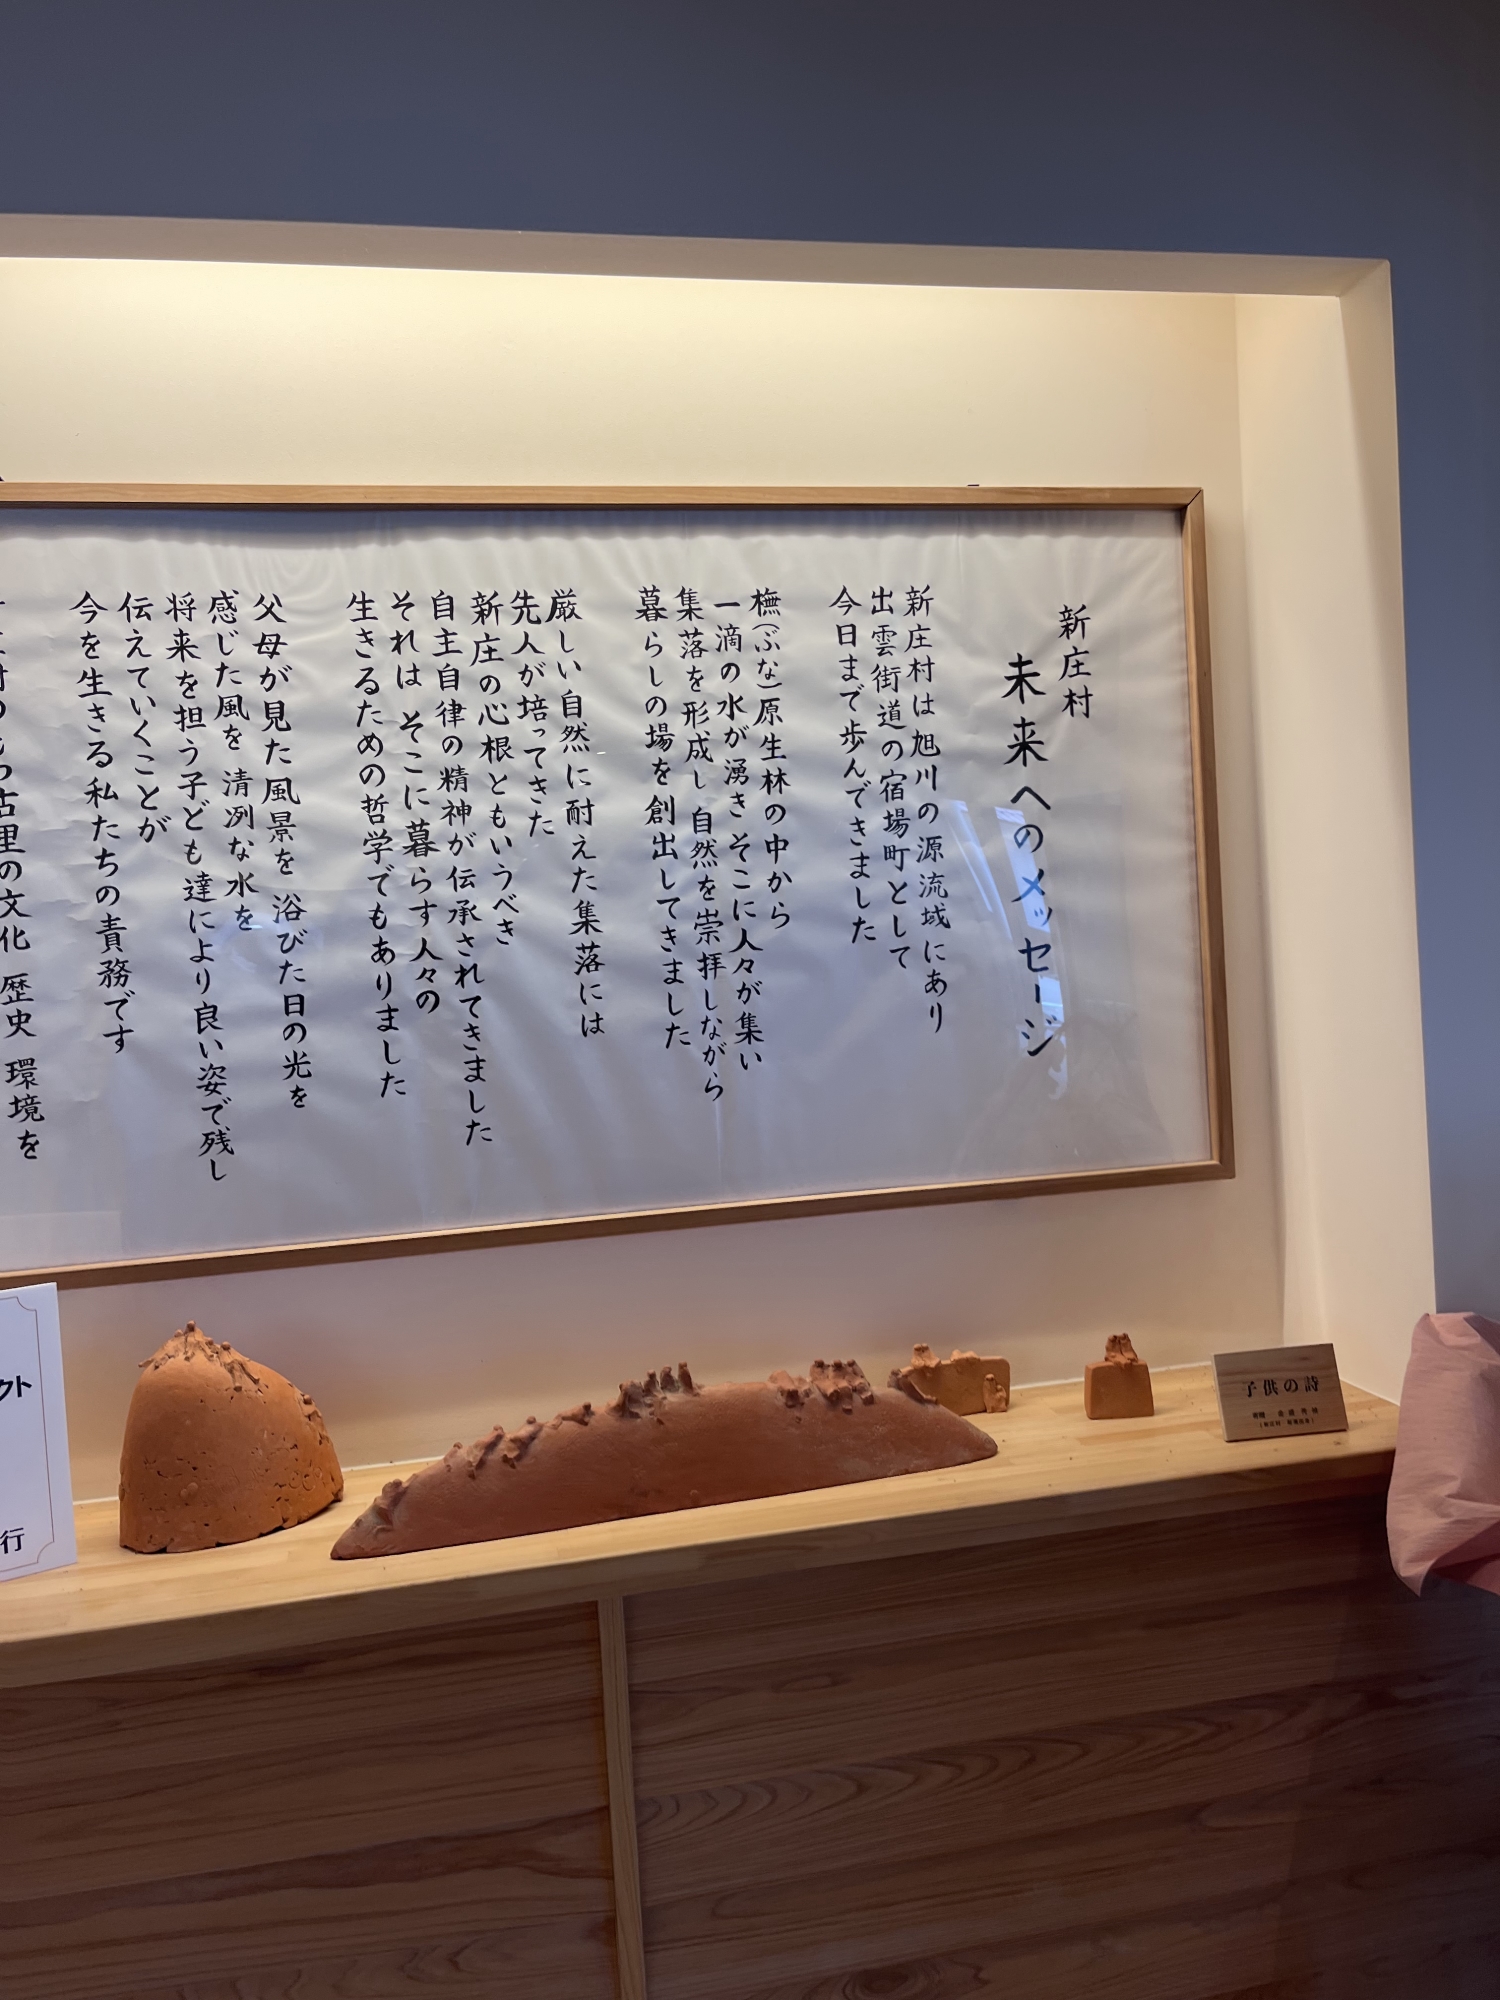 新庄村
未来へのメッセージ
新庄村は旭川の源流域にあり
出雲街道の宿場町として
今日まで歩んできました
橅(ぶな)原生林の中から
一滴の水が湧き そこに人々が集い
集落を形成し 自然を崇拝しながら
暮らしの場を創出してきました
厳しい自然に耐えた集落には
先人が培ってきた
新庄の心根ともいうべき
自主自律の精神が伝承されてきました
それは そこに暮らす人々の
生きるための哲学でもありました
父母が見た風景を 浴びた日の光を
感じた風を 清冽な水を
将来を担う子ども達により良い姿で残し
伝えていくことが
今を生きる私たちの責務です
古里の文化 歴史 環境を
クト
行
子供の詩